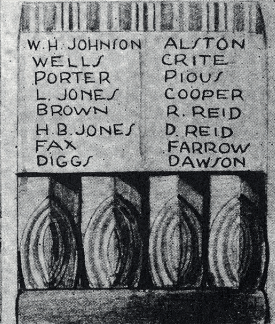 W. H. JOHNSON
WELLS
PORTER
L. JONES
BROWN
H. B. JONES
FAX
DIGGS
ALSTON
CRITE
PIOUS
COOPER
R. REID
D. REID
FARROW
DAWSON